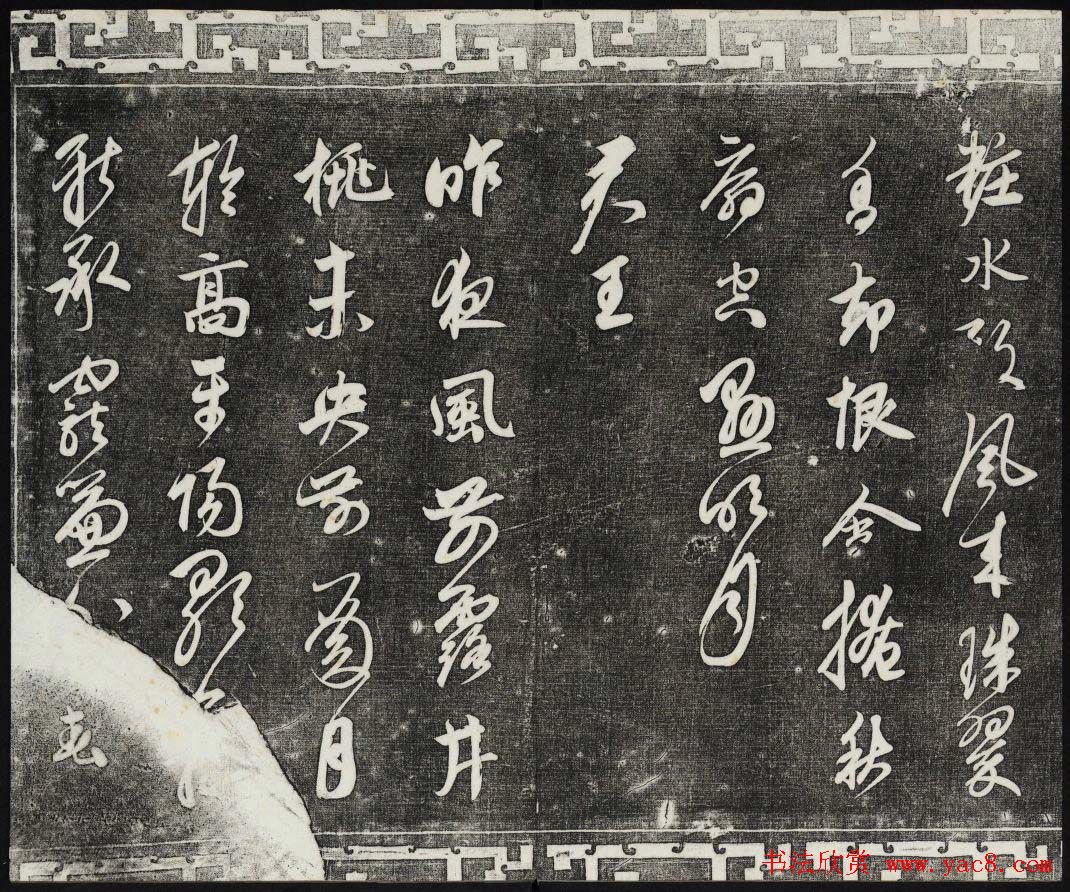 粧水殿風來珠翠
香却恨含掩秋
扇空懸明月
君王
昨夜風開露井
桃未央前殿月
輪高平陽歌
新承寵簾外春
书法欣赏 www.yac8.com